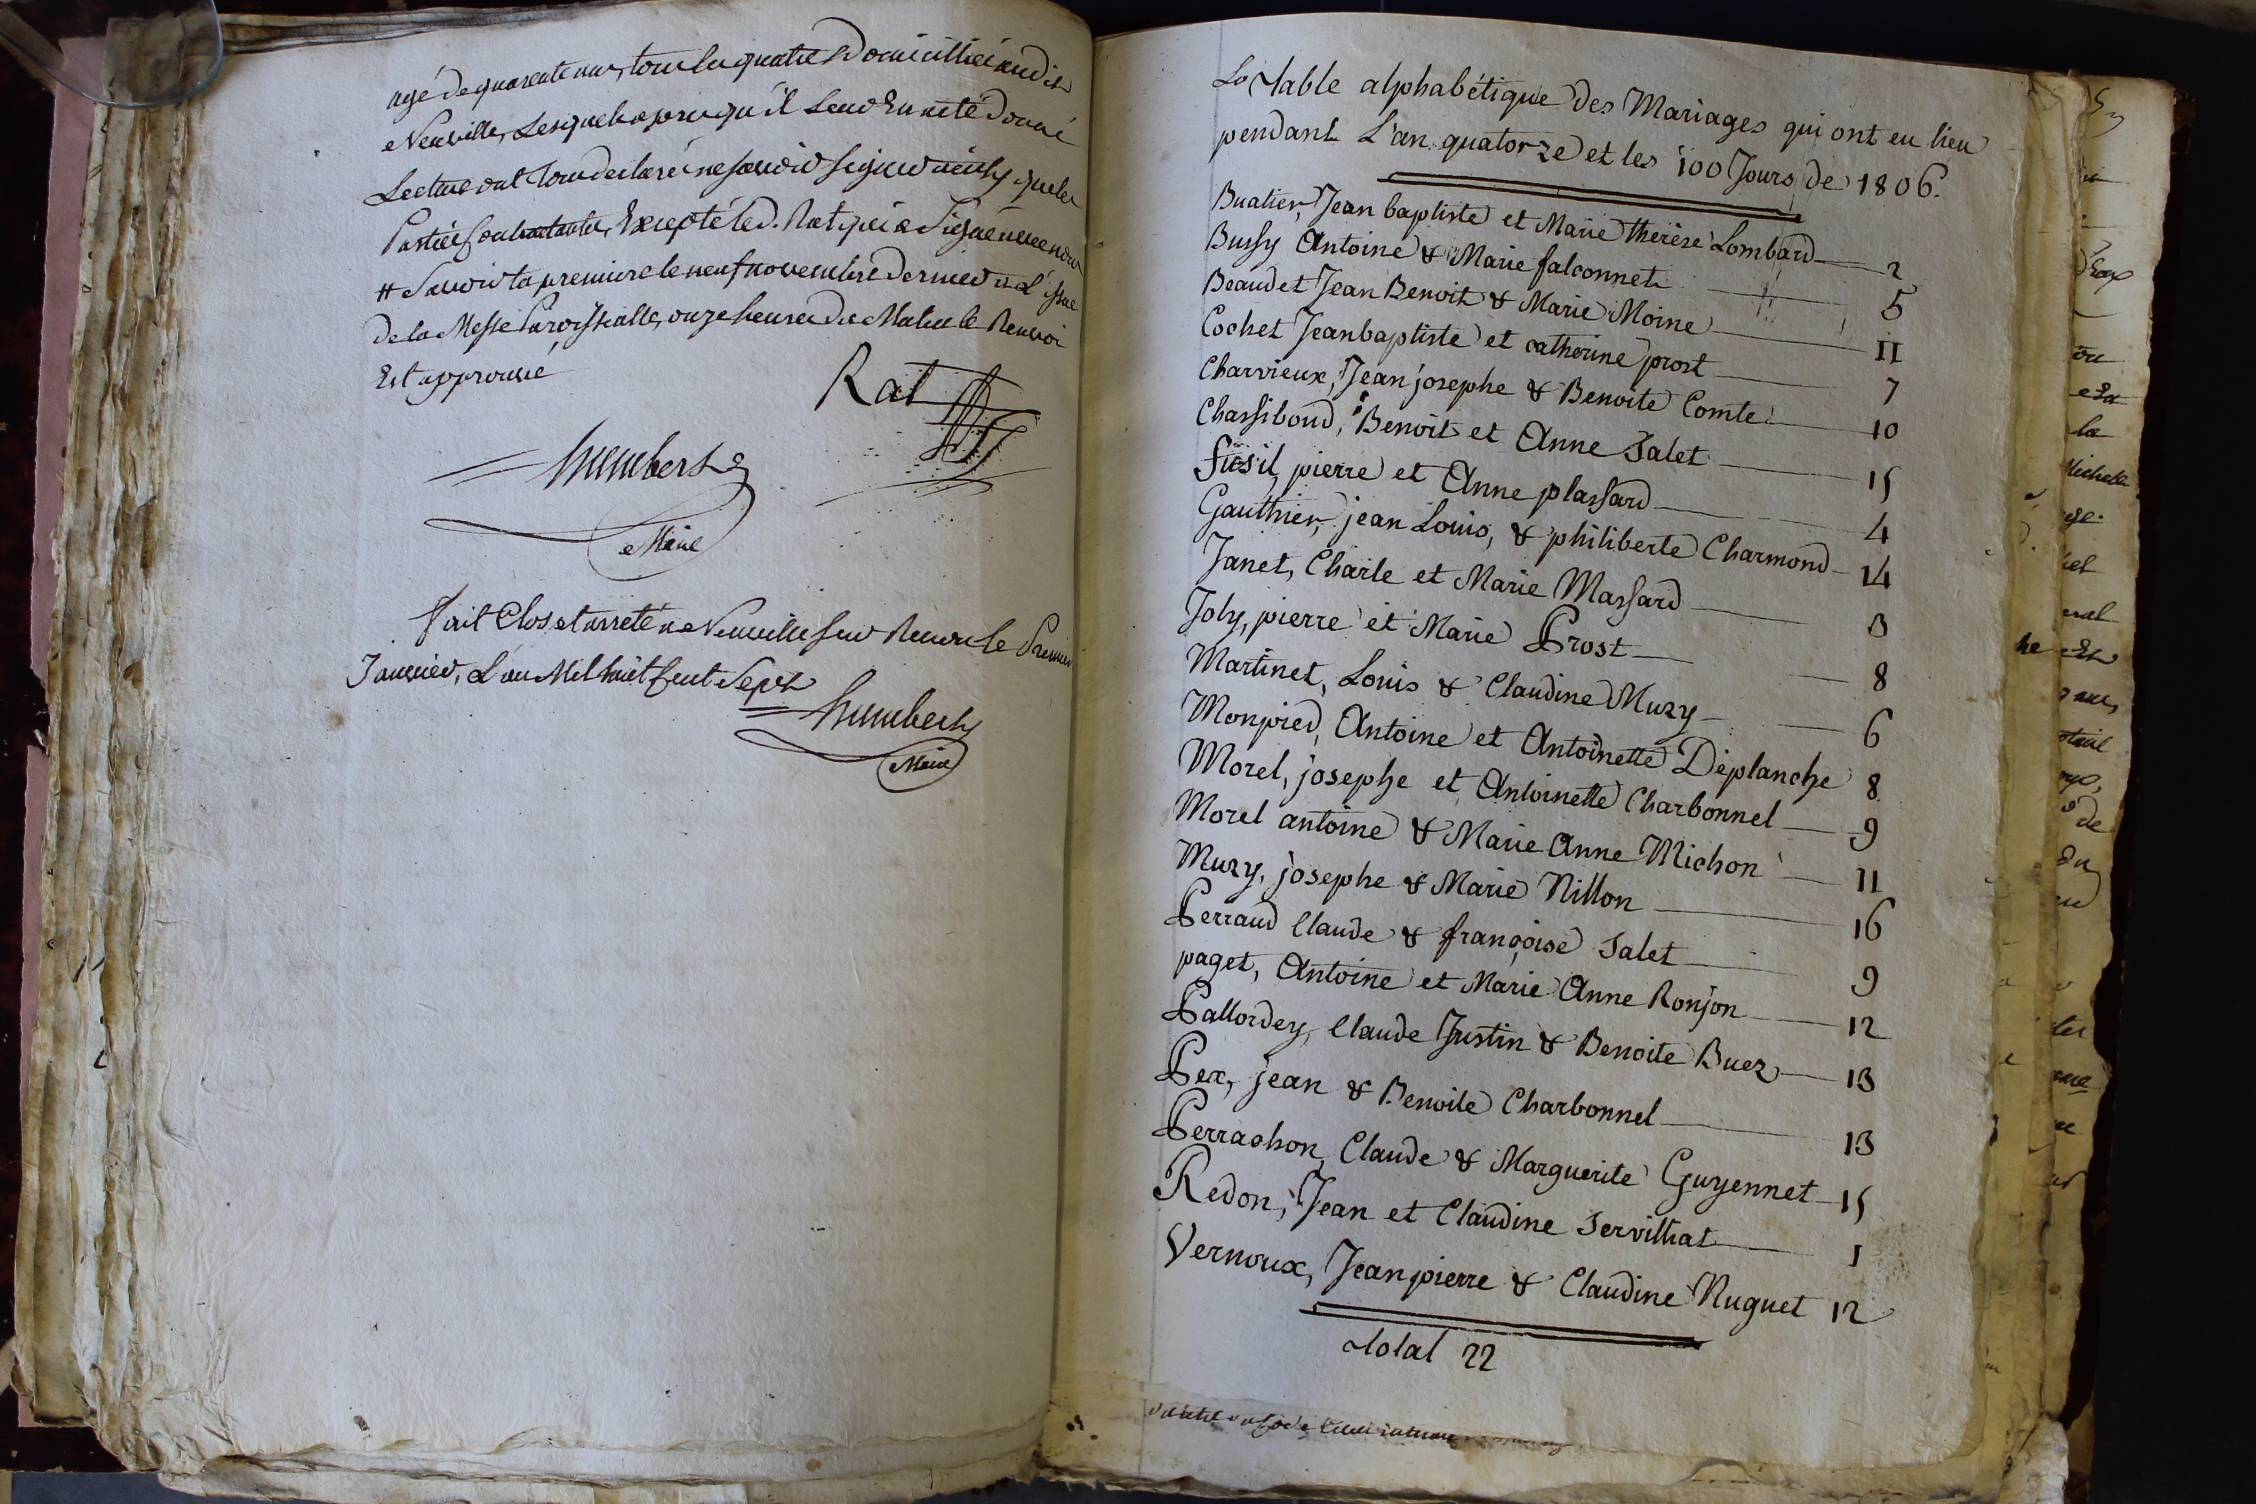 agé de quarente ans, tous les quatres Domicilliés audit
Neuville, Lesquels apres qu'il Leur En a été Donné
Lecture ont tous declaré ne savoir signer ainsy que les
Parties Contractantes, Excepté led. Rat qui a Signé avec nous
# Savoir la premiere le neuf novembre dernier a L'issue
de la Messe Paroissialle, onze heures du Matin le Renvoi
Est approuvé
Rat
humbert
Maire
fait Clos et arreté a Neuville sur Renon le Premier
Janvier, L'an Mil huit Cent Sept
humbert
Maire
La Table alphabétique des Mariages qui ont eu lieu
pendant L'an quatorze et les 100 Jours de 1806.
Buatier, Jean baptiste et Marie thérèse Lombard 2
Bussy Antoine & Marie falconnet 5
Beaudet Jean Benoit & Marie Moine 11
Cochet Jeanbaptiste et catherine prost 7
Charvieux, Jean josephe & Benoite Comte 10
Chassiboud, Benoit et Anne Salet 15
Fusil, pierre et Anne plassard 4
Gauthier, jean Louis, & philiberte Charmond 14
Janet, Charle et Marie Massard 3
Joly, pierre et Marie Prost 8
Martinet, Louis & Claudine Muzy 6
Monpied, Antoine et Antoinette Déplanche 8
Morel, josephe et Antoinette Charbonnel 9
Morel antoine & Marie Anne Michon 11
Muzy, josephe & Marie Nillon 16
Perraud Claude & françoise Salet 9
paget, Antoine et Marie Anne Ronjon 12
Pallordey, Claude Justin & Benoite Buez 13
Pex, jean & Benoite Charbonnel 13
Perrachon, Claude & Marguerite Guyennet 15
Redon, Jean et Claudine Servilhat 1
Vernoux, Jeanpierre & Claudine Nuguet 12
Total 22